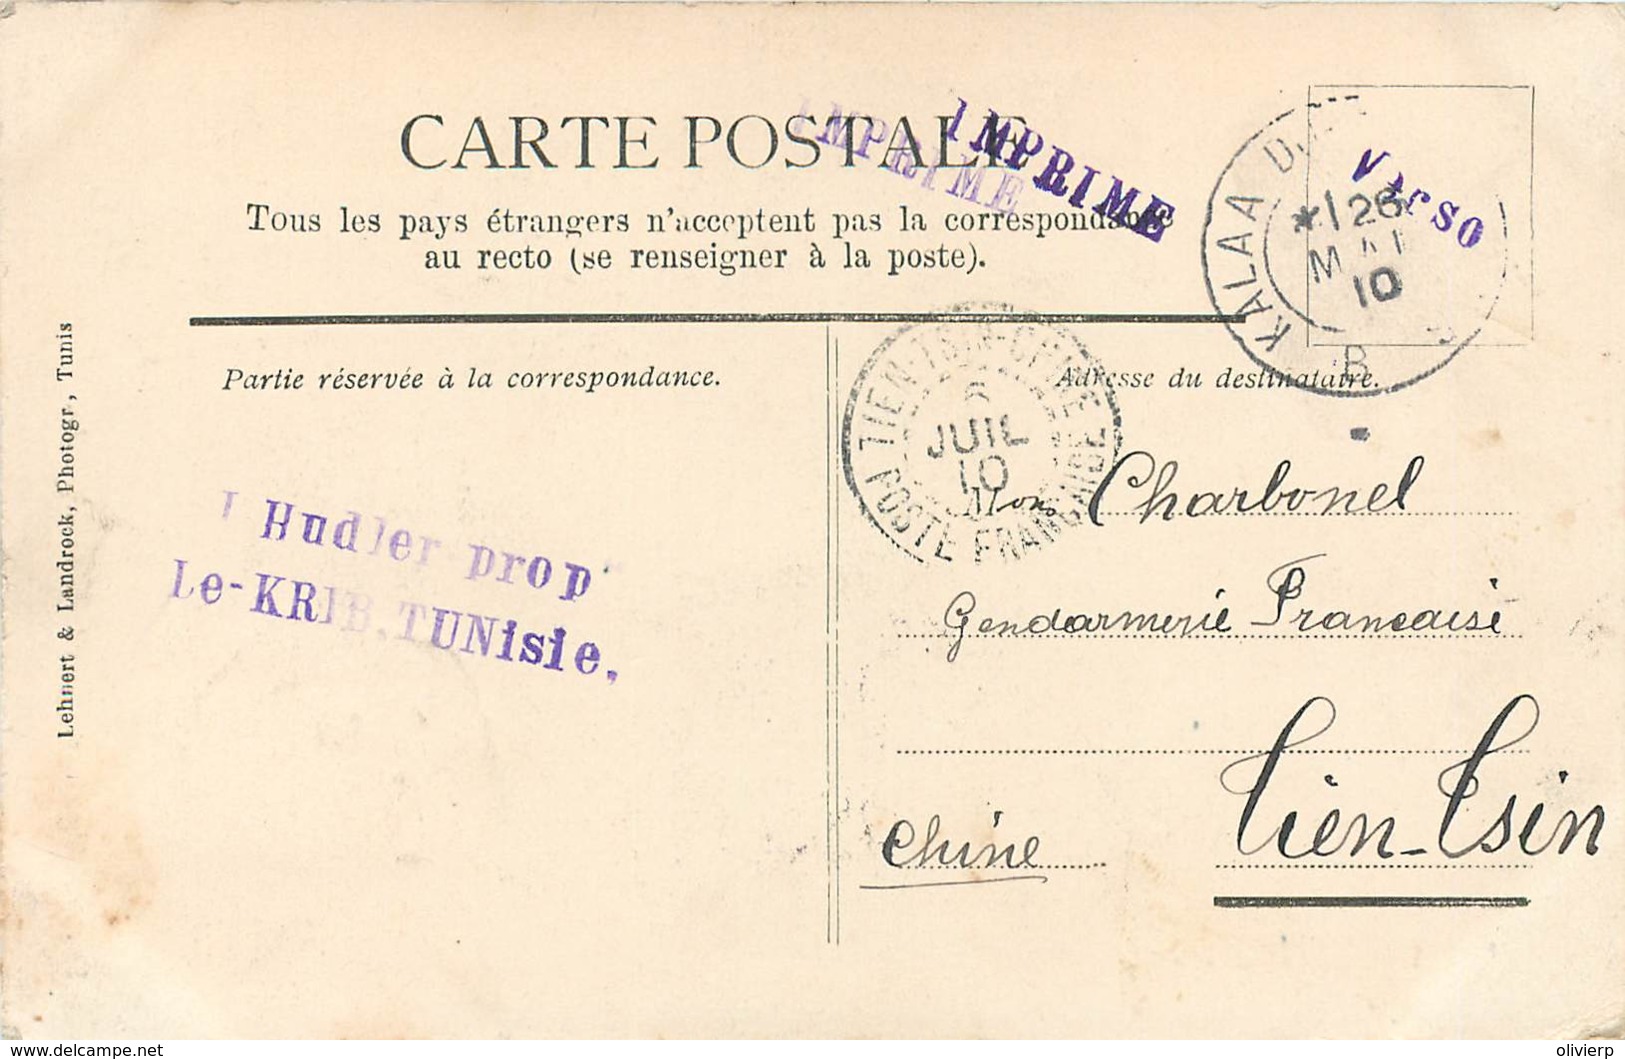 CARTE POSTALE
IMPRIME
IMPRIME
Verso
Tous les pays étrangers n'acceptent pas la correspondance
au recto (se renseigner à la poste).
KALAA
26
MAI
10
B
Partie réservée à la correspondance.
Adresse du destinataire.
TIEN-TSIN-CHINE
6
JUIL
10
POSTE FRANÇAISE
Lehnert & Landrock, Photogr, Tunis
Hudler prop
Le-KRIB.TUNisie.
Mons Charbonel
Gendarmerie Francaise
Tien-Tsin
Chine
delcampe.net
olivierp